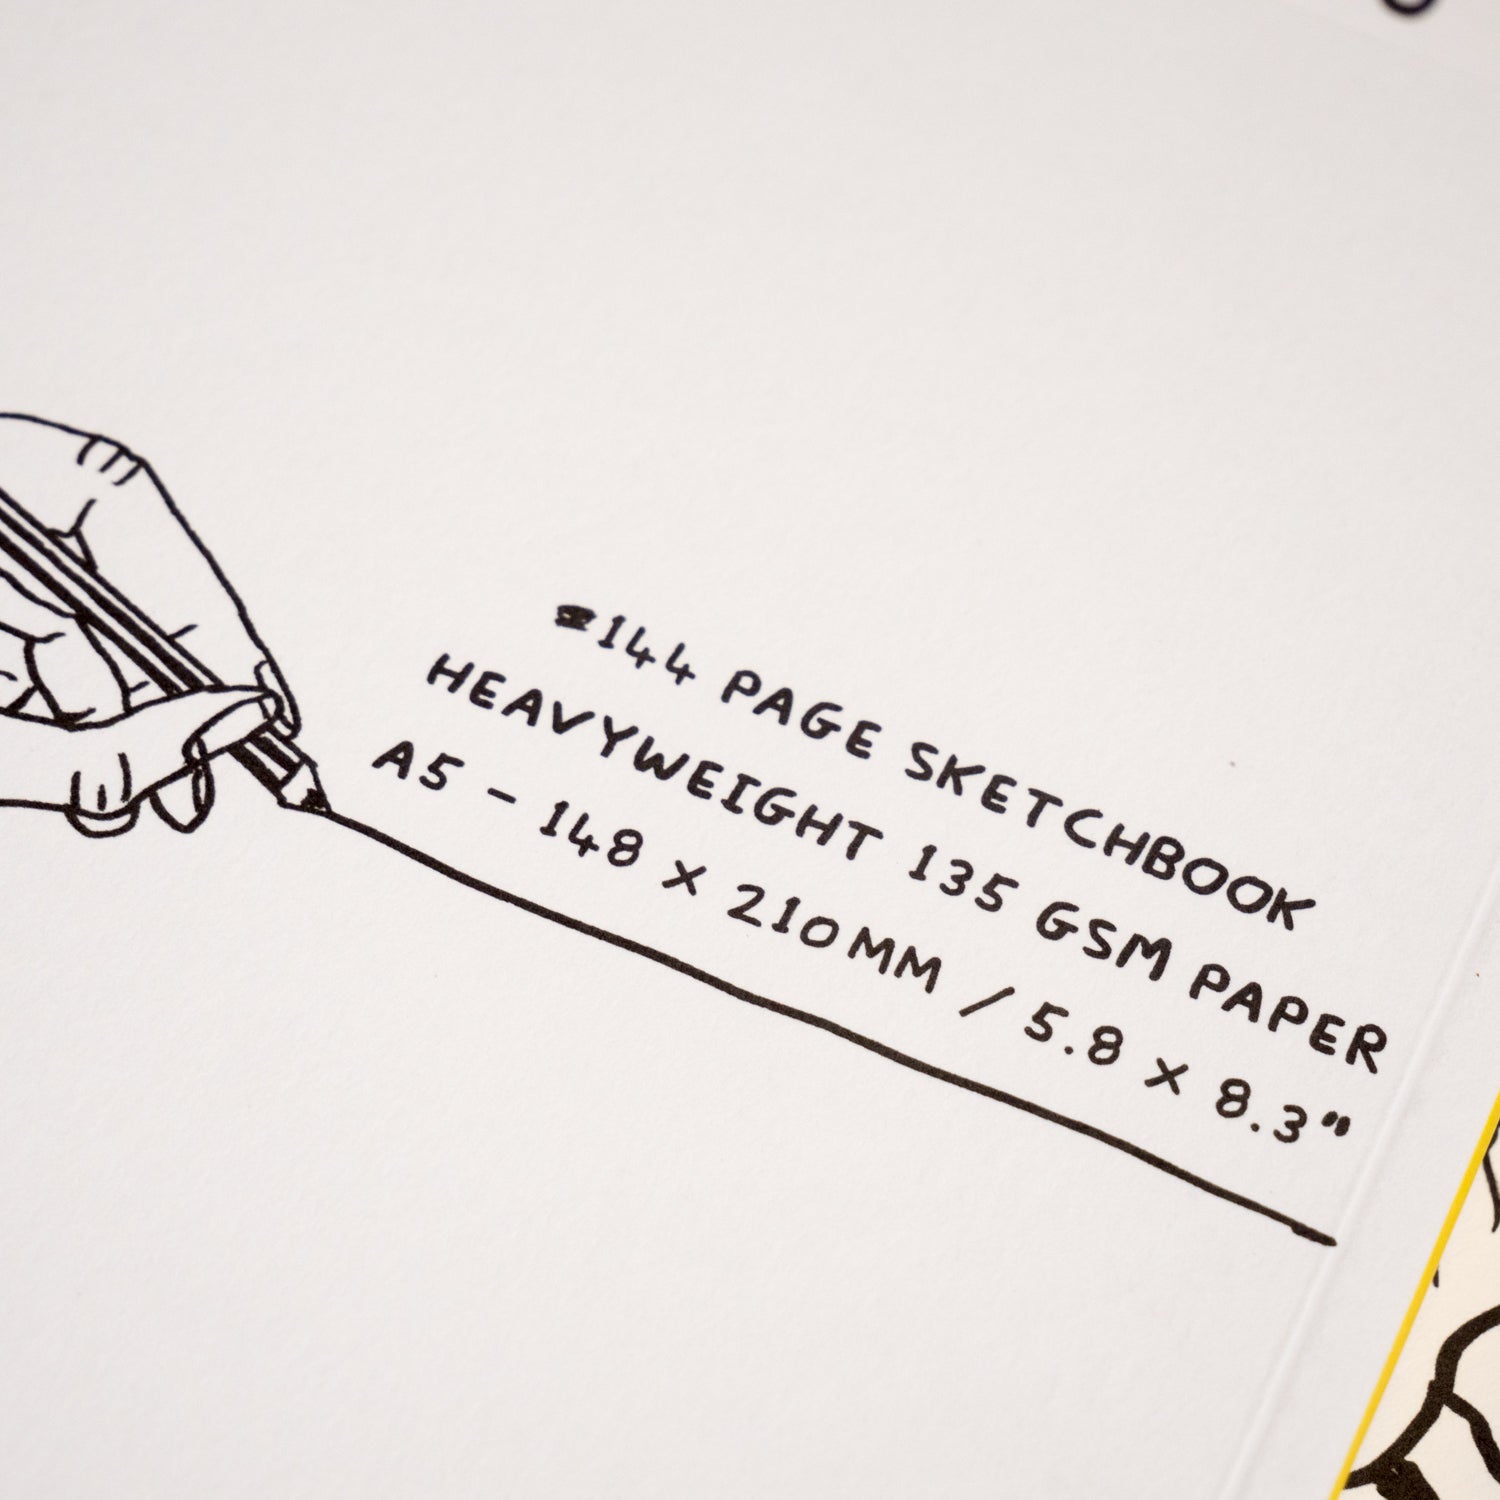 144 PAGE SKETCHBOOK
HEAVYWEIGHT 135 GSM PAPER
A5 - 148 X 210MM / 5.8 X 8.3"